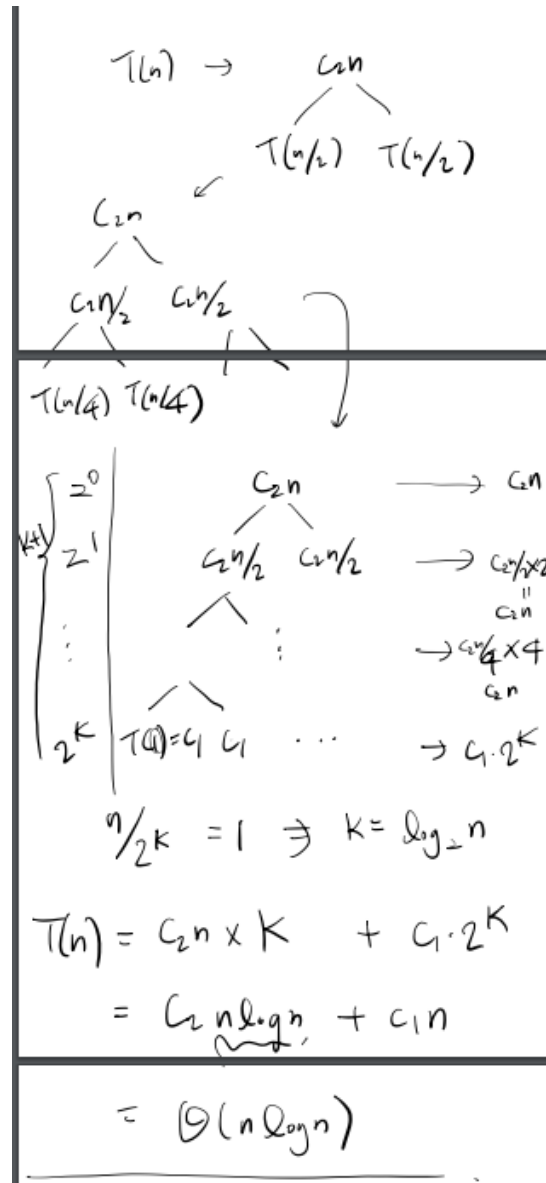 T(n) → C₂n
T(n/2) T(n/2)
↙
C₂n
C₂n/2 C₂n/2
T(n/4) T(n/4)
2⁰ C₂n → C₂n
k+1 2¹ C₂n/2 C₂n/2 → C₂n/2×2
॥
C₂n
⋮ ⋮ → C₂n/4 × 4
C₂n
2ᴷ T(1)=C₁ C₁ ⋯ → C₁·2ᴷ
n/2ᴷ = 1 ⇒ k = log₂ n
T(n) = C₂n × K + C₁·2ᴷ
= C₂ n log n + C₁n
= Θ(n log n)